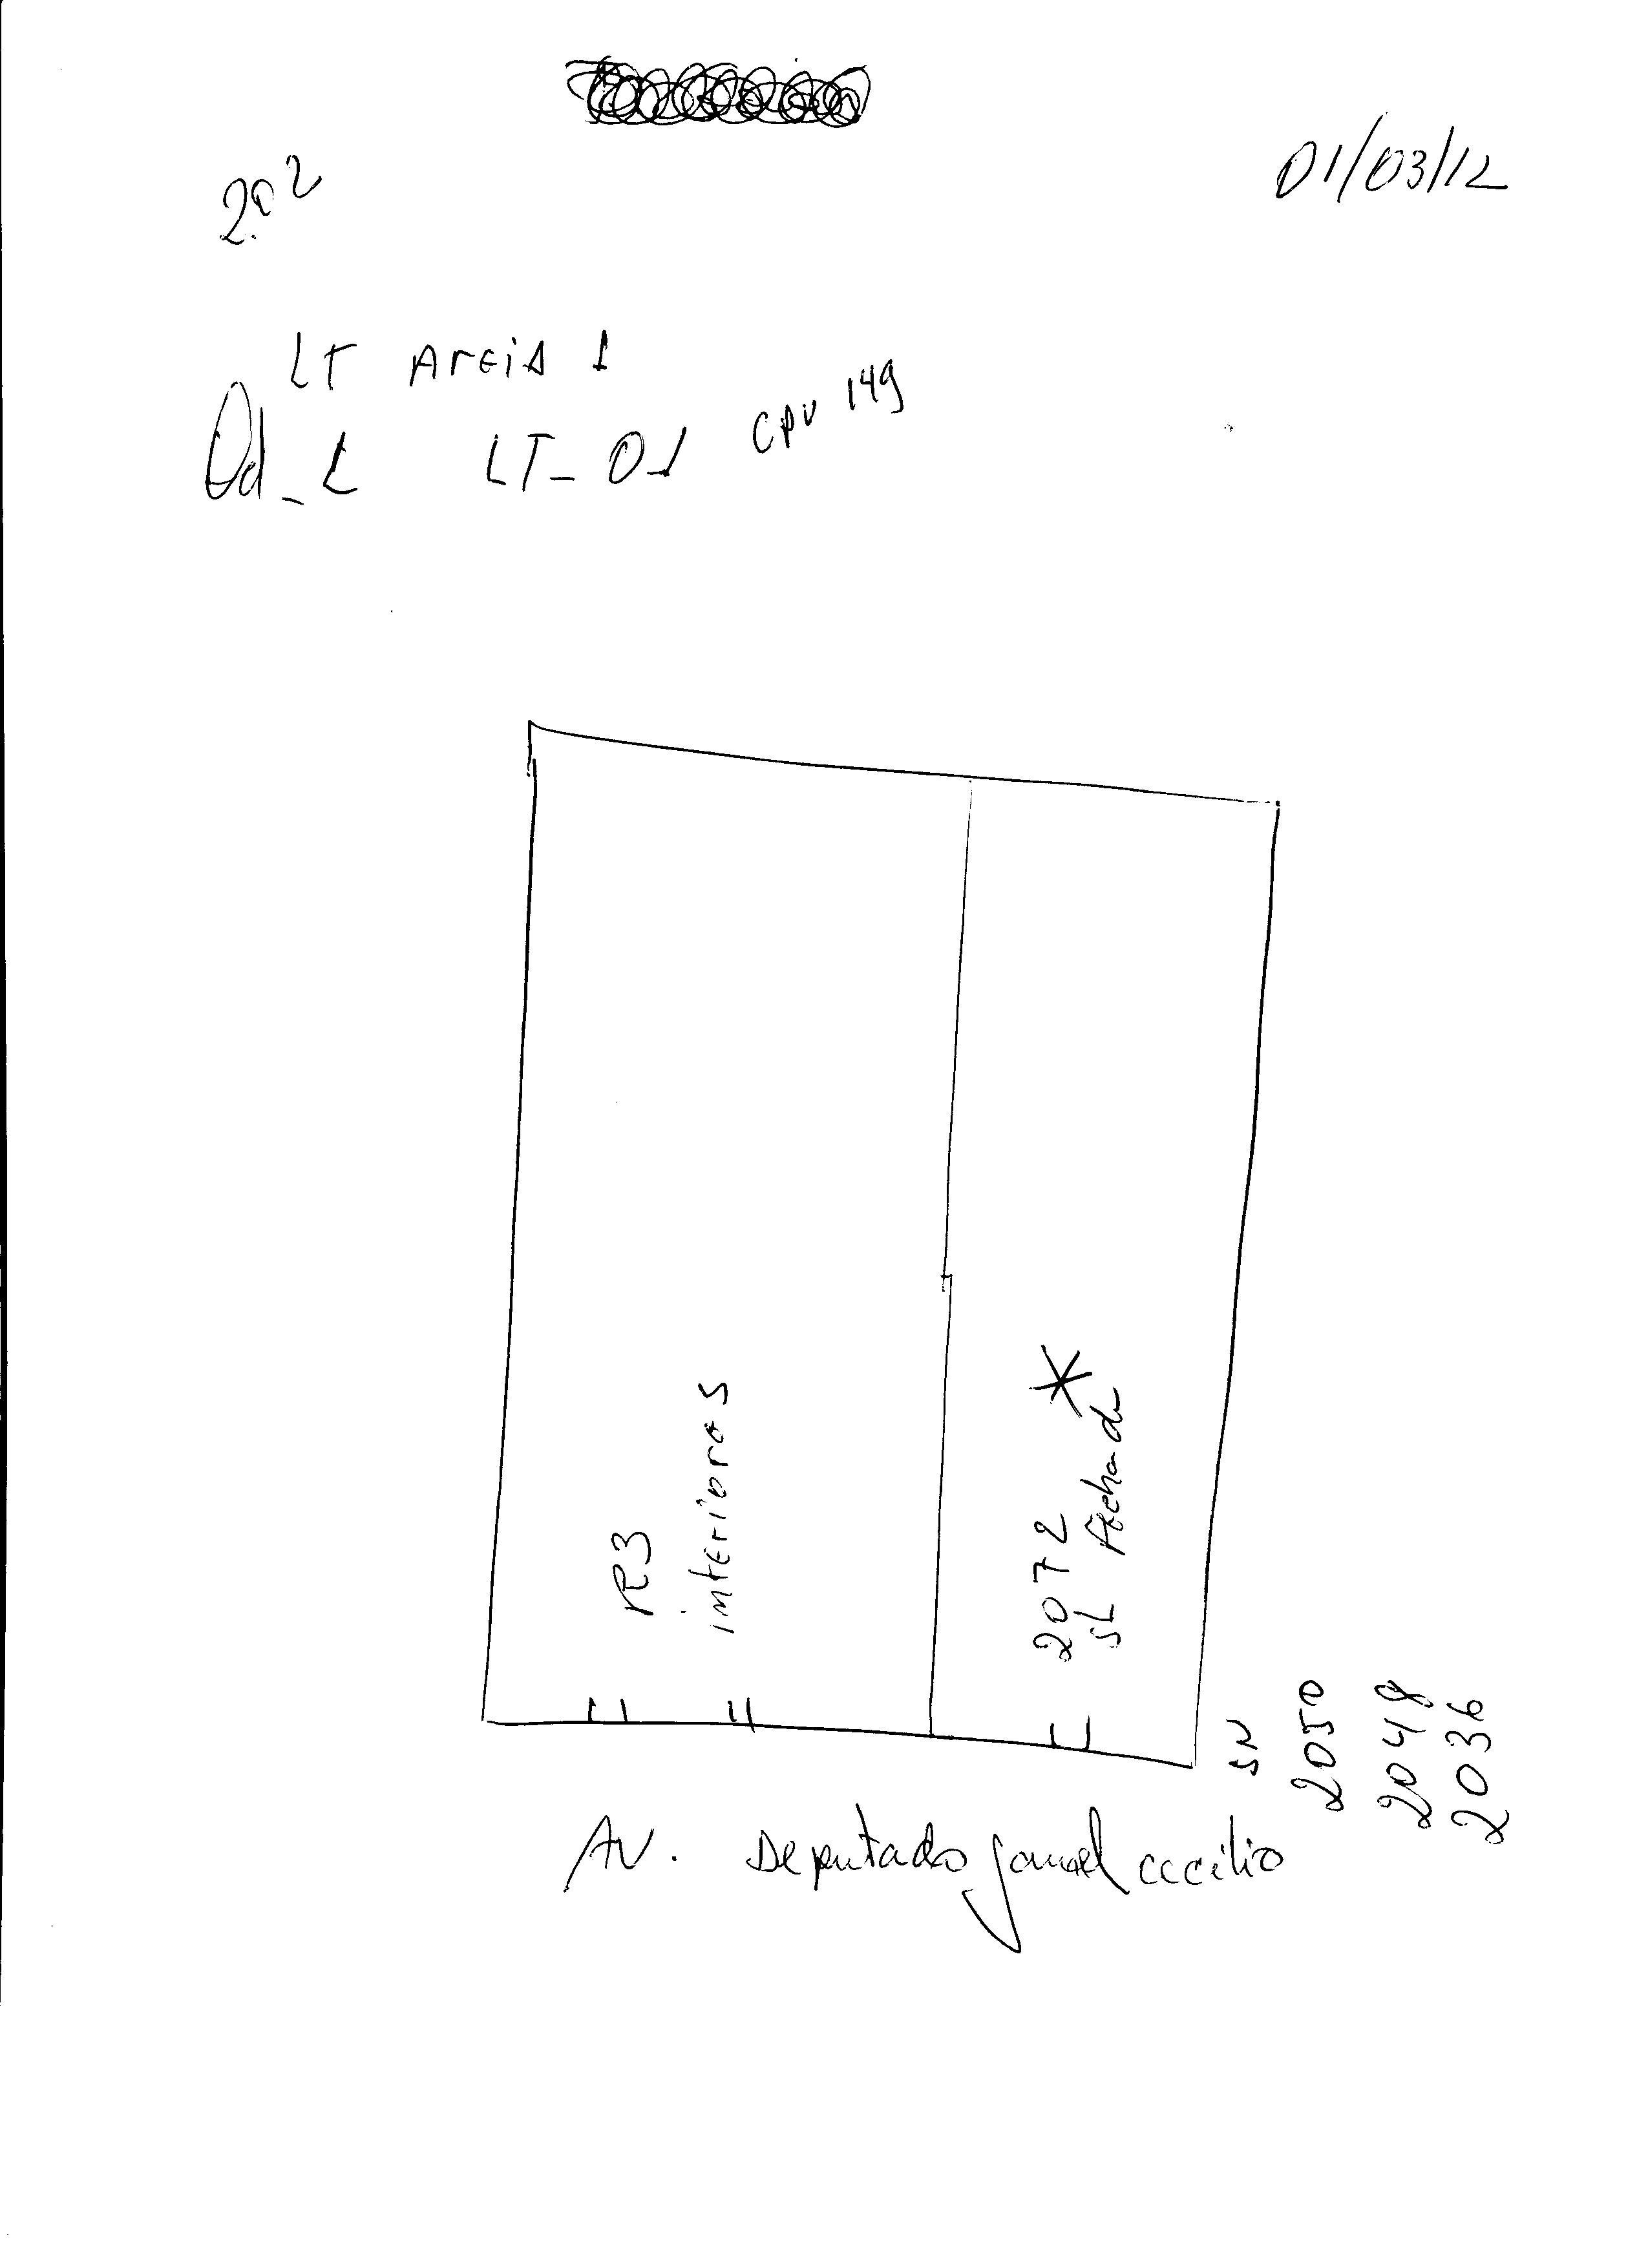 01/03/12
LT Areia 1
Qd_1 LT_01 CPU 149
R3
interiores
2072 *
SL Fechada
SN
2050
2048
2036
AV. Deputado jamel cecilio